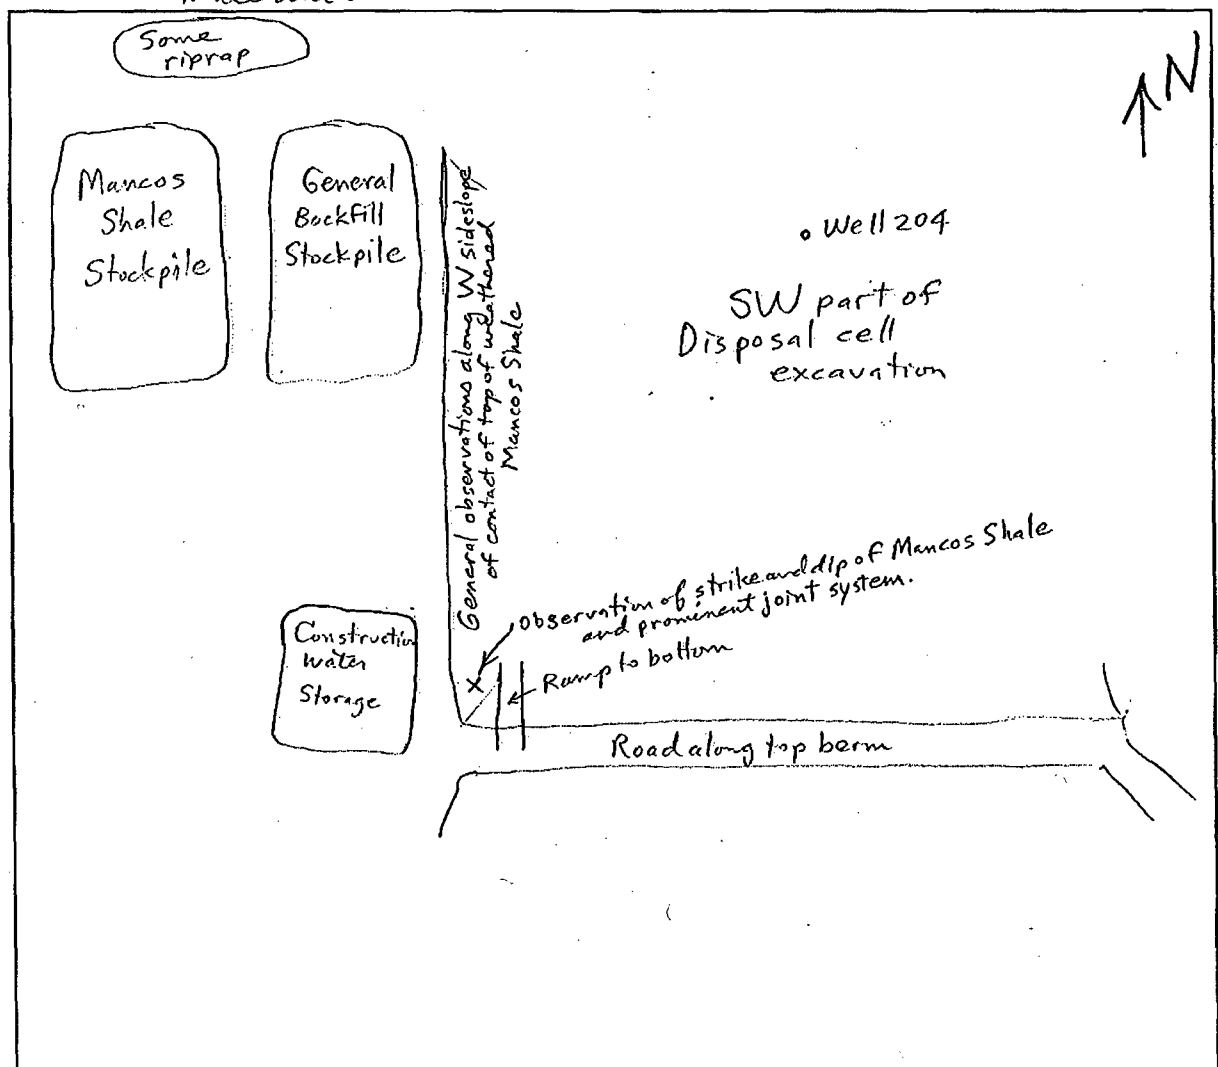 Some
riprap
N
Mancos
Shale
Stockpile
General
Backfill
Stockpile
General observations along W sideslope
of contact of top of weathered
Mancos Shale
Well 204
SW part of
Disposal cell
excavation
Observation of strike and dip of Mancos Shale
and prominent joint system.
Ramp to bottom
Construction
water
Storage
Road along top berm